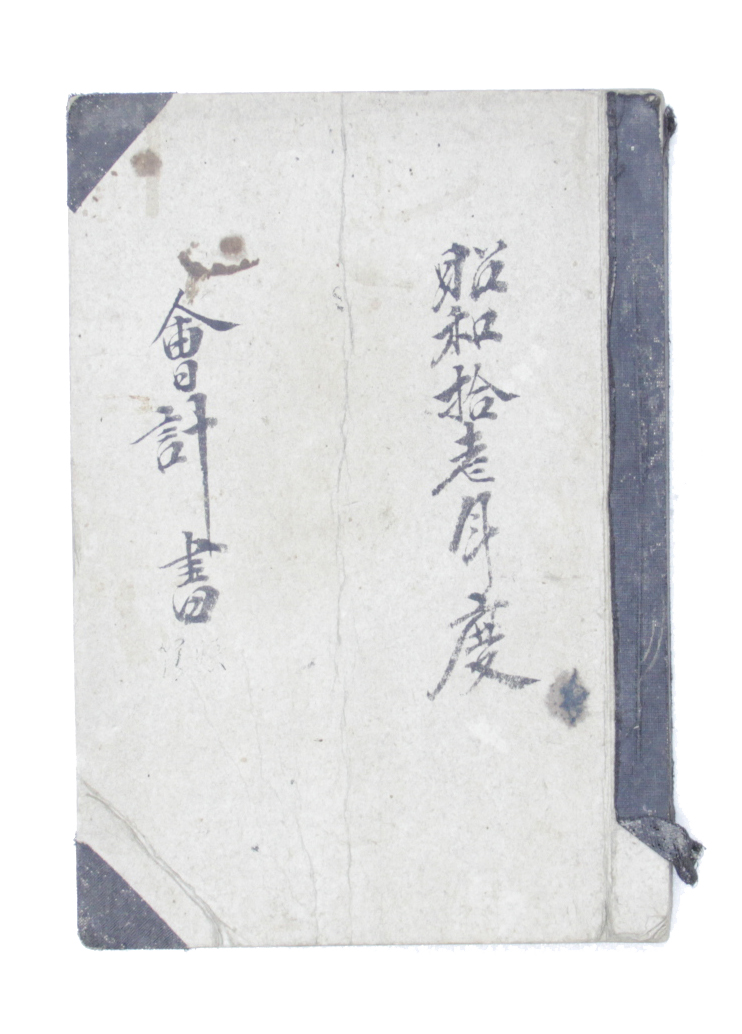 昭和拾壱年度
會計書